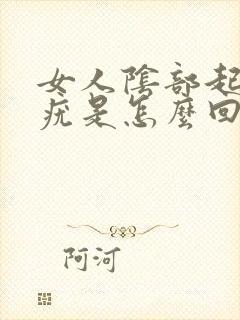 女人陰部起
疣是怎麼回
阿河